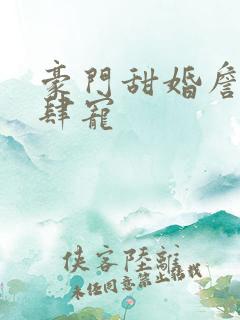 豪門甜婚詹
肆寵
俠客陸離
未经同意禁止搭我